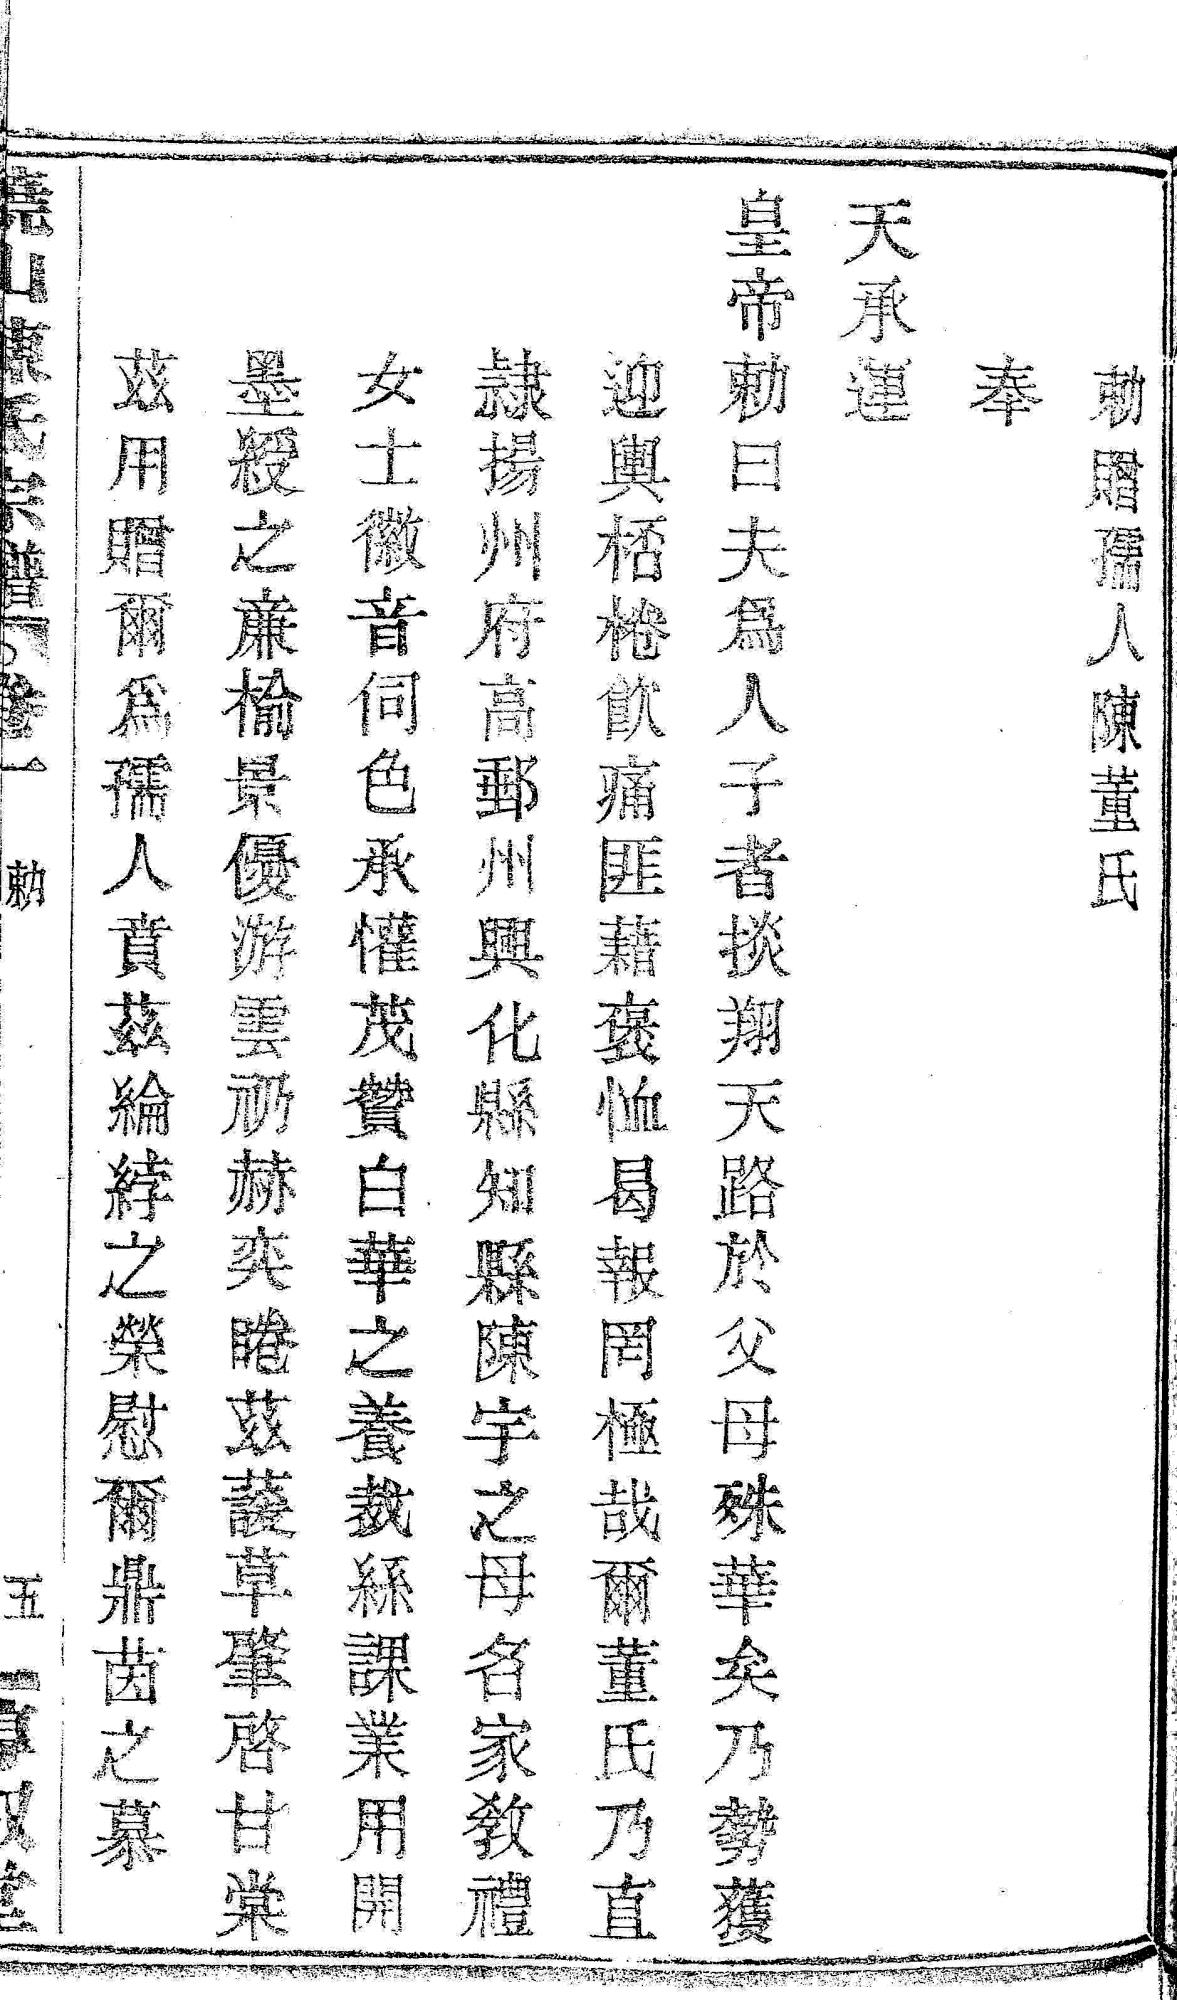 勅贈孺人陳董氏
奉
天承運
皇帝勅曰夫爲人子者掞翔天路於父母殊華矣乃勢獲
迎輿桮棬飲痛匪藉褒恤曷報罔極哉爾董氏乃直
隷揚州府高郵州興化縣知縣陳宇之母名家敎禮
女士徽音伺色承懽茂贊白華之養裁絲課業用開
墨綬之廉榆景優游雲礽赫奕睠兹護草肇啓甘棠
茲用贈爾爲孺人賁茲綸綍之榮慰爾鼎茵之慕
山陳氏宗譜 卷一 勅 五